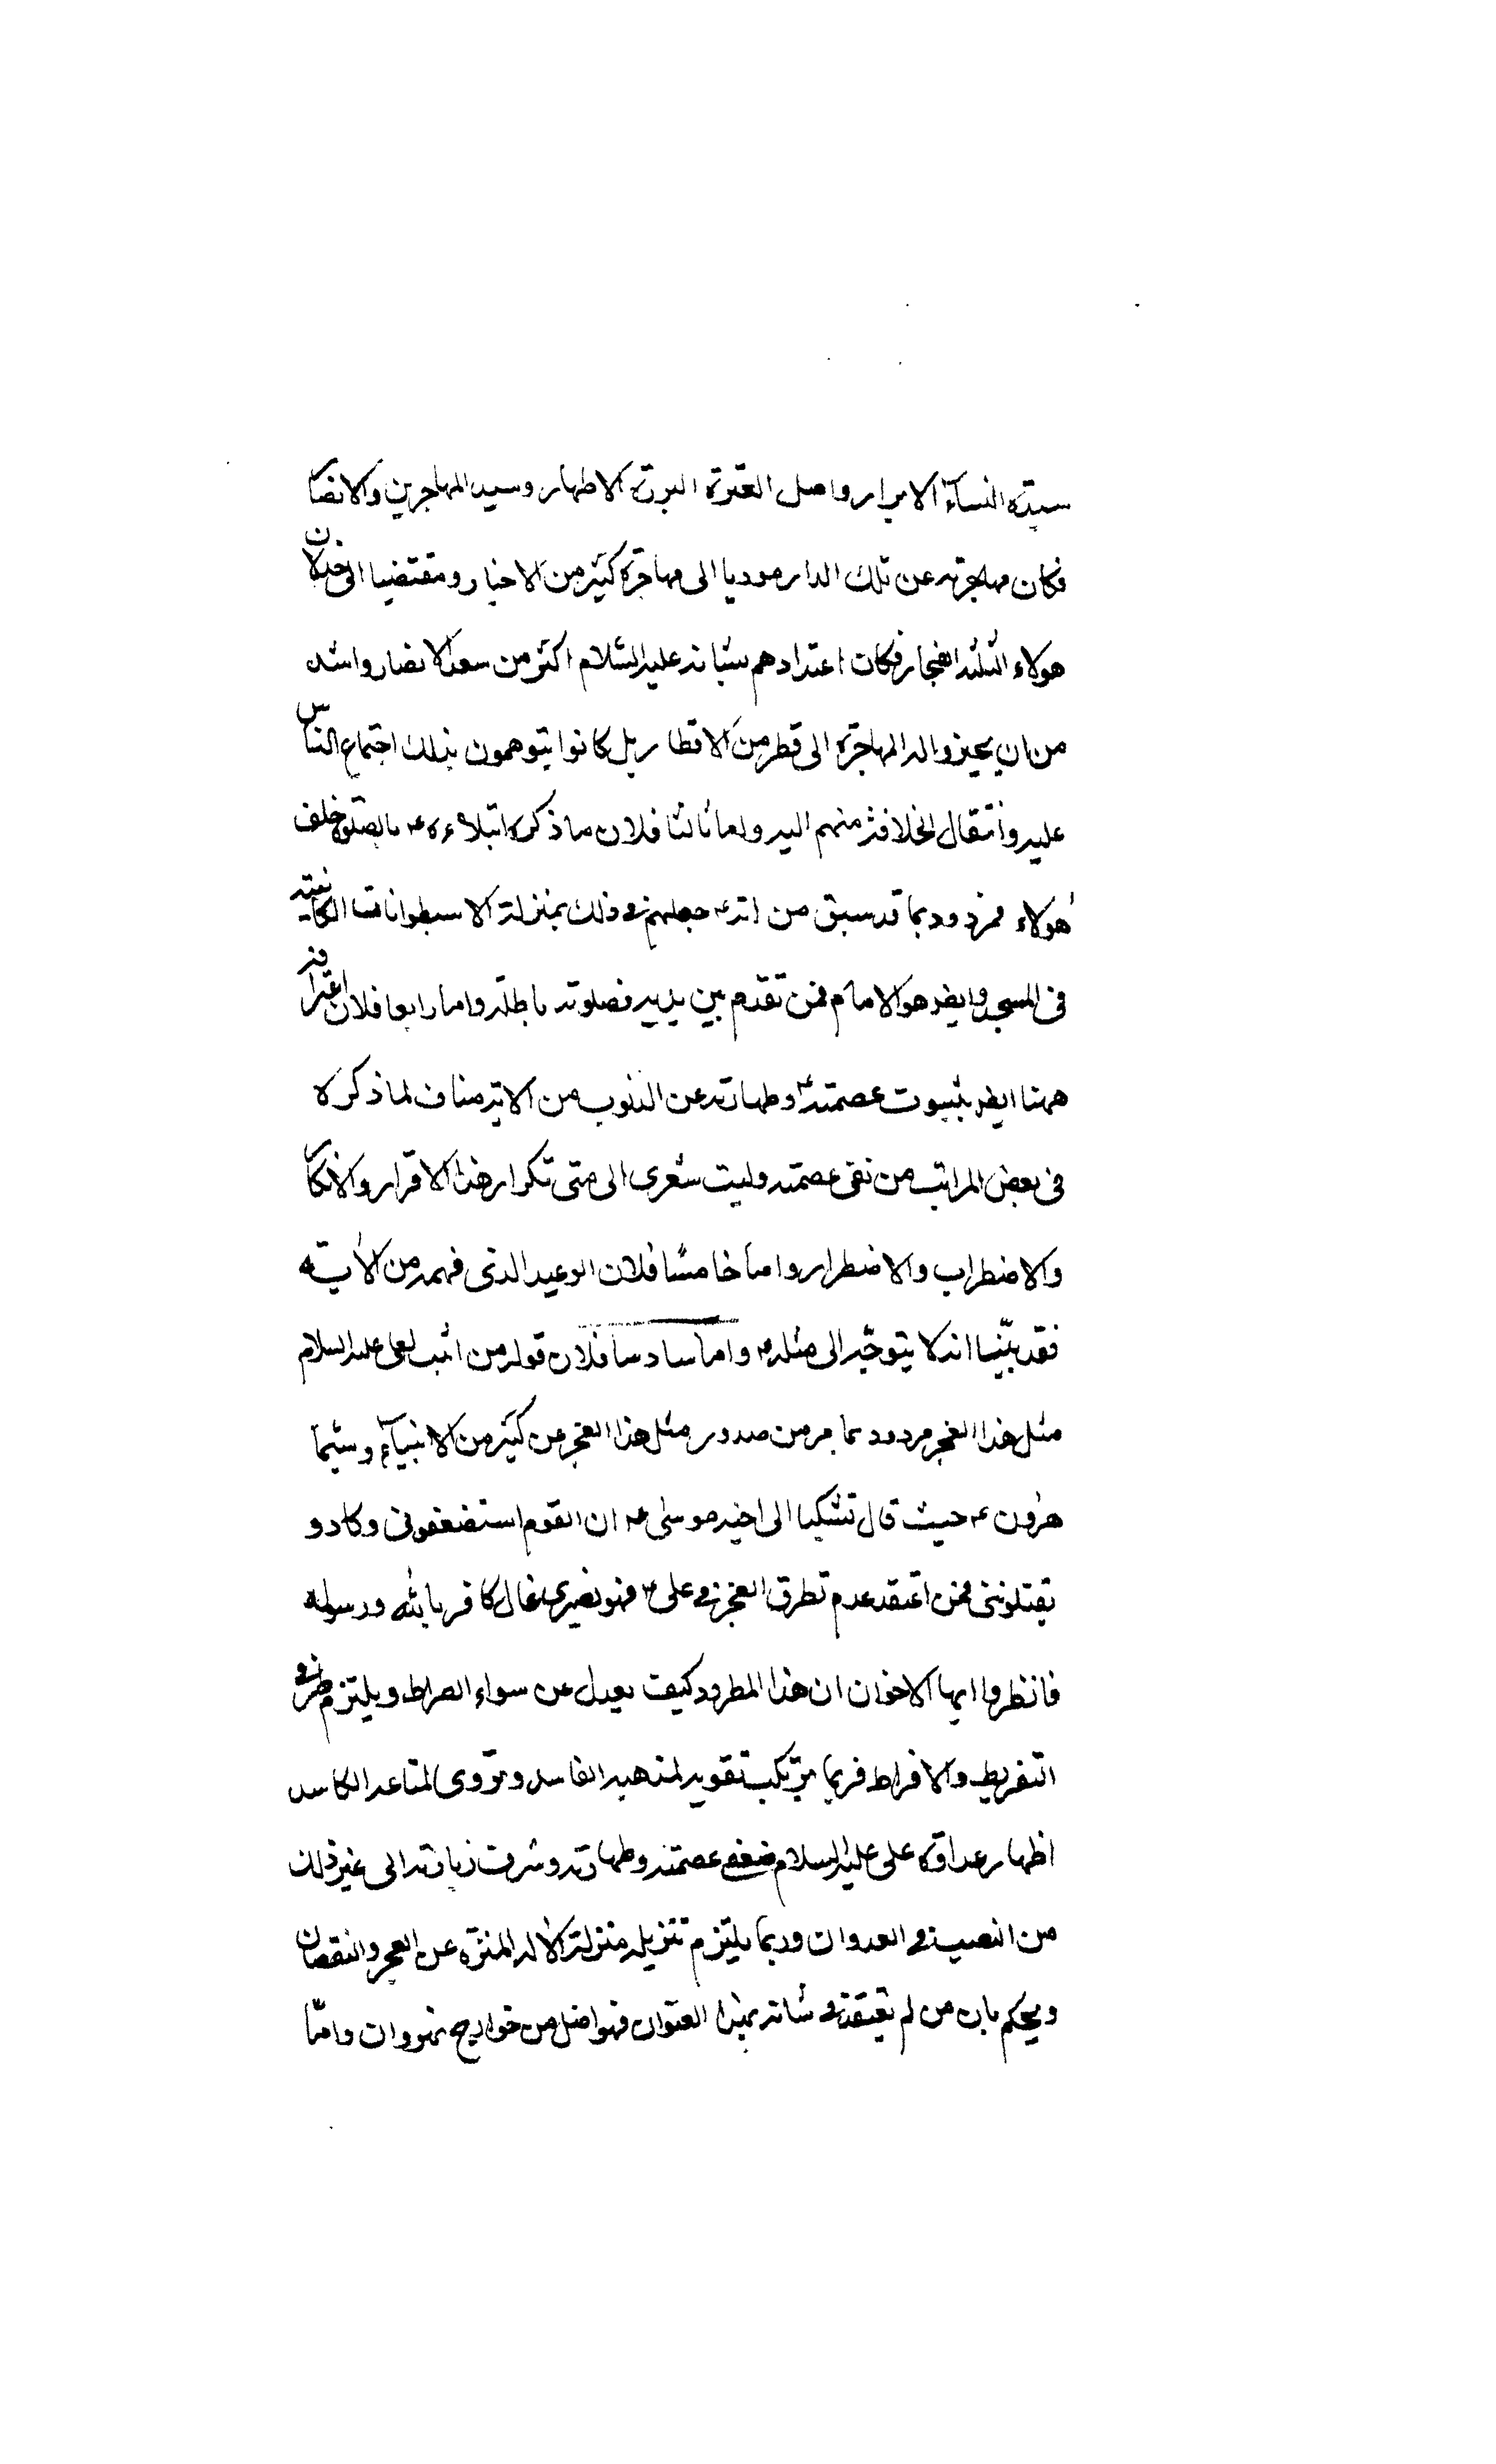 سيدة النسآء الابرار واصل العترة البررة الاطهار وسيد المهاجرين والانصار
فكان مهاجرته عن تلك الدار موديا الى مهاجرة كثير من الاخيار ومقتضيا الى خذلان
هولاء الثلثه الفجار فكان اعتدادهم بشانه عليه السلام اكثر من سعد الانصار واشد
من ان يجيزوا له المهاجرة الى قطر من الاقطار بل كانوا يتوهمون بذلك اجتماع الناس
عليه وانتقال الخلافة منهم اليه واما ثالثا فلان ما ذكره ابتلاءه ع بالصلوة خلف
هولاء فمردود بما قد سبق من انه ع جعلهم في ذلك بمنزلة الاسطوانات الكاينة
في المسجد وايضا هو الامام فمن تقدم بين يديه فصلوته باطلة واما رابعا فلان اعترافه
ههنا ايضا بثبوت عصمته وطهارته عن الذنوب من الاية مناف لما ذكره
في بعض المراتب من نفى عصمته وليت شعرى الى متى تكرار هذا الاقرار والانكار
والاضطراب والاضطرار واما خامسا فلان الوعيد الذى فهمه من الآية
فقد بيّنا انه لا يتوجّه الى مثله ع واما سادسا فلان قوله من اثبت لعلى عليه السلام
مثل هذا العجز مردود بما مر من صدور مثل هذا العجز عن كثير من الانبيآء وسيّما
هرون ع حيث قال تشكيا الى اخيه موسى ع ان القوم استضعفونى وكادو
يقتلوننى فمن اعتقد عدم تطرق العجز في على ع فهو نصيرى غال كافر بالله ورسوله
فانظروا ايها الاخوان ان هذا المطرود كيف يعدل عن سواء الصراط ويلتزم طرفي
التفريط والافراط فربما يرتكب تقوية لمذهبه الفاسد وترويى لمتاعه الكاسد
اظهار عداوة على عليه السلام ضعف عصمته وطهارته وشرف زيارته الى غير ذلك
من النصب في العدوان وربما يلتزم تنزيله منزلة الاله المنزّه عن العجز والنقصان
ويحكم بان من لم يعتقد في شانه بهذا العنوان فهو اضل من خوارج نهروان وامّا